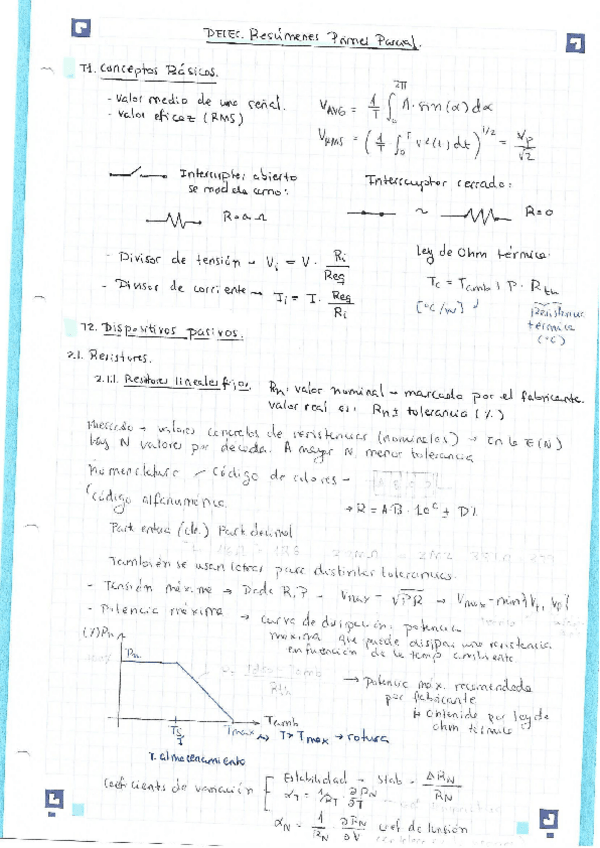 DELEC. Resúmenes Primer Parcial.
T1. Conceptos Básicos.
- Valor medio de una señal.
- Valor eficaz (RMS)
V_AVG = 1/T ∫_0^{2π} A·sin(α) dα
V_RMS = (1/T ∫_0^T v²(t) dt)^{1/2} = Vp/√2
Interruptor abierto
se modela como:
R=∞ Ω
Interruptor cerrado:
~ R=0
- Divisor de tensión → Vi = V · Ri/Req
- Divisor de corriente → Ii = I · Req/Ri
Ley de Ohm térmica:
Tc = Tamb + P · Rth
[°C/W]
Resistencia
térmica
(°C)
T2. Dispositivos pasivos.
2.1. Resistores.
2.1.1. Resistores lineales fijos.
Rn: valor nominal → marcado por el fabricante.
valor real es: Rn ± tolerancia (%)
Mercado → valores concretos de resistencias (nominales) → En la E(N)
hay N valores por década. A mayor N, menor tolerancia
Nomenclatura
Código de colores →
Código alfanumérico
→ R = AB · 10^C ± D%
Part entera (de.) Part decimal
También se usan letras para distintas tolerancias.
- Tensión máxima → Dada R, P → Vmax = √PR → Vmax = min{
- Potencia máxima → curva de disipación: potencia
máxima que puede disipar una resistencia
en función de la temp ambiente
(%)Pn
Pn
Tamb
Tmax → T>Tmax → rotura
T. almacenamiento
→ potencia máx. recomendada
por fabricante
↳ Obtenida por ley de
ohm térmica
Coeficiente de variación
Estabilidad → stab = ΔRN/RN
α_T = 1/R_T · ∂RN/∂T
α_N = 1/RN · ∂RN/∂V coef de tensión